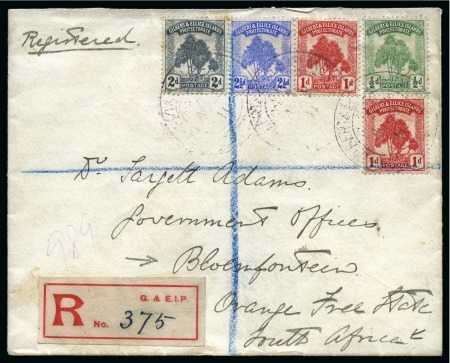 Registered
GILBERT & ELLICE ISLANDS
PROTECTORATE
2d 2d
POSTAGE
GILBERT & ELLICE ISLANDS
PROTECTORATE
2½d 2½d
POSTAGE
GILBERT & ELLICE ISLANDS
PROTECTORATE
1d 1d
POSTAGE
GILBERT & ELLICE ISLANDS
PROTECTORATE
½d ½d
POSTAGE
GILBERT & ELLICE ISLANDS
PROTECTORATE
1d 1d
POSTAGE
Dr Targett Adams.
Government Offices
Bloemfontein
Orange Free State
South Africa
989
R G. & E.I.P.
No. 375